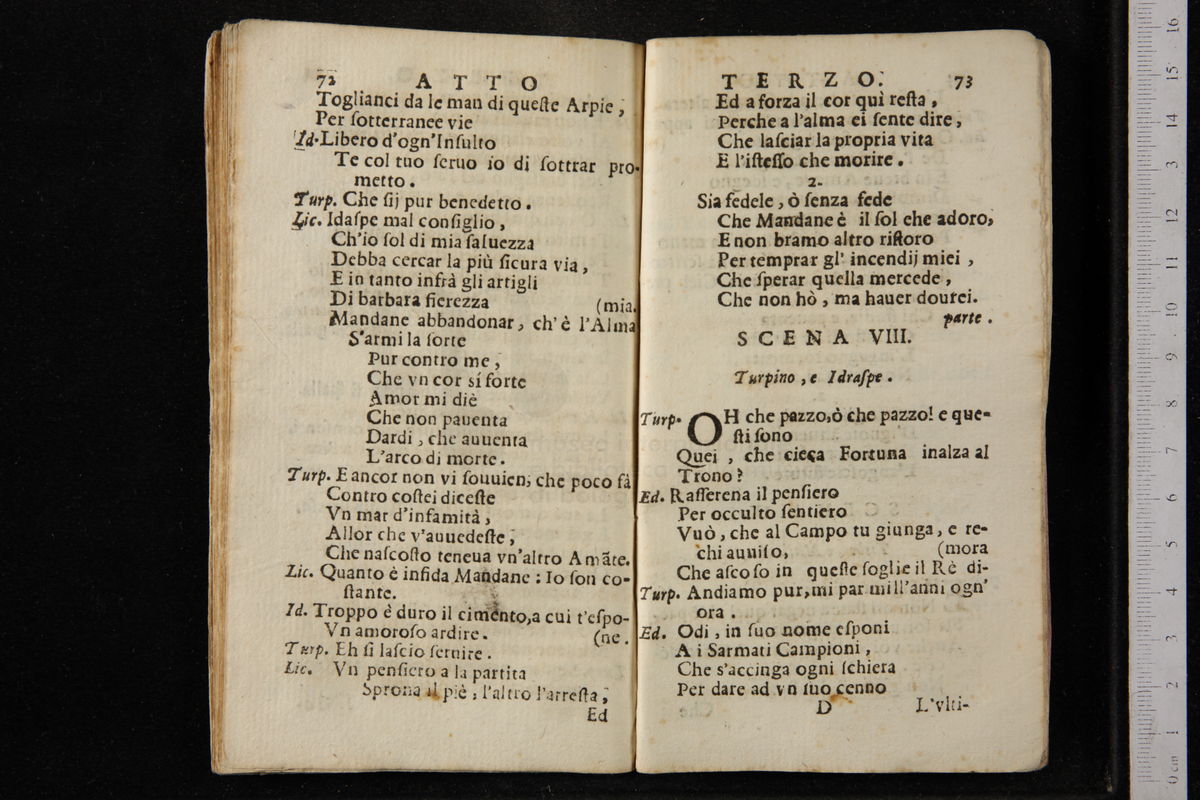 72 ATTO
Toglianci da le man di queſte Arpie,
Per ſotterranee vie
Id. Libero d'ogn'Inſulto
Te col tuo ſeruo io di ſottrar pro-
metto.
Turp. Che ſij pur benedetto.
Lic. Idaſpe mal conſiglio,
Ch'io ſol di mia ſaluezza
Debba cercar la più ſicura via,
E in tanto infrà gli artigli
Di barbara fierezza (mia.
Mandane abbandonar, ch'è l'Alma
S'armi la ſorte
Pur contro me,
Che vn cor sí forte
Amor mi diè
Che non pauenta
Dardi, che auuenta
L'arco di morte.
Turp. E ancor non vi ſouuien, che poco fà
Contro coſtei diceſte
Vn mar d'infamità,
Allor che v'auuedeſte,
Che naſcoſto teneua vn'altro Amãte.
Lic. Quanto è infida Mandane: Io ſon co-
ſtante.
Id. Troppo è duro il cimento, a cui t'eſpo-
Vn amoroſo ardire. (ne.
Turp. Eh ſi laſcio ſeruire.
Lic. Vn penſiero a la partita
Sprona il piè, l'altro l'arreſta,
Ed
TERZO. 73
Ed a forza il cor quì reſta,
Perche a l'alma ei ſente dire,
Che laſciar la propria vita
E l'iſteſſo che morire.
2.
Sia fedele, ò ſenza fede
Che Mandane è il ſol che adoro,
E non bramo altro riſtoro
Per temprar gl' incendij miei,
Che ſperar quella mercede,
Che non hò, ma hauer dourei.
parte.
SCENA VIII.
Turpino, e Idraſpe.
Turp. OH che pazzo, ò che pazzo! e que-
ſti ſono
Quei, che cieca Fortuna inalza al
Trono?
Ed. Raſſerena il penſiero
Per occulto ſentiero
Vuò, che al Campo tu giunga, e re-
chi auuiſo, (mora
Che aſcoſo in queſte ſoglie il Rè di-
Turp. Andiamo pur, mi par mill'anni ogn'
ora.
Ed. Odi, in ſuo nome eſponi
A i Sarmati Campioni,
Che s'accinga ogni ſchiera
Per dare ad vn ſuo cenno
D L'vlti-
0 cm 1 2 3 4 5 6 7 8 9 10 11 12 13 14 15 16